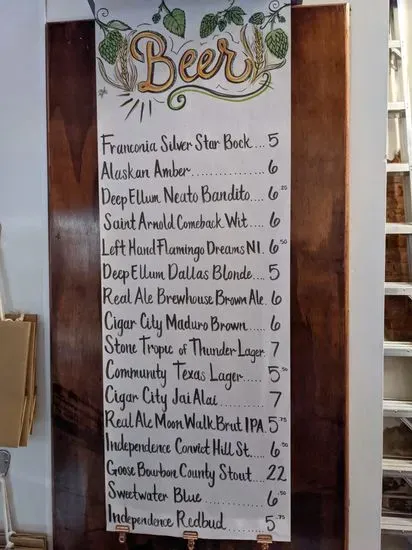 Beer
Franconia Silver Star Bock.... 5
Alaskan Amber............. 6
Deep Ellum Neato Bandito.... 6.25
Saint Arnold Comeback Wit... 6
Left Hand Flamingo Dreams NI. 6.50
Deep Ellum Dallas Blonde.... 5
Real Ale Brewhouse Brown Ale. 6
Cigar City Maduro Brown.... 6
Stone Tropic of Thunder Lager. 7
Community Texas Lager..... 5.50
Cigar City Jai Alai......... 7
Real Ale Moon Walk Brut IPA. 5.75
Independence Convict Hill St.... 6.50
Goose Bourbon County Stout.... 22
Sweetwater Blue........... 6.50
Independence Redbud....... 5.75